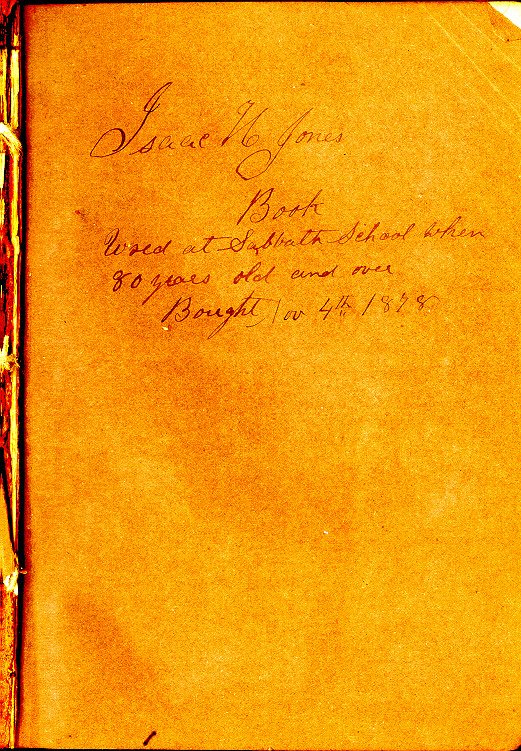 Isaac H Jones
Book
Used at Sabbath School when
80 years old and over
Bought Nov 4th 1878